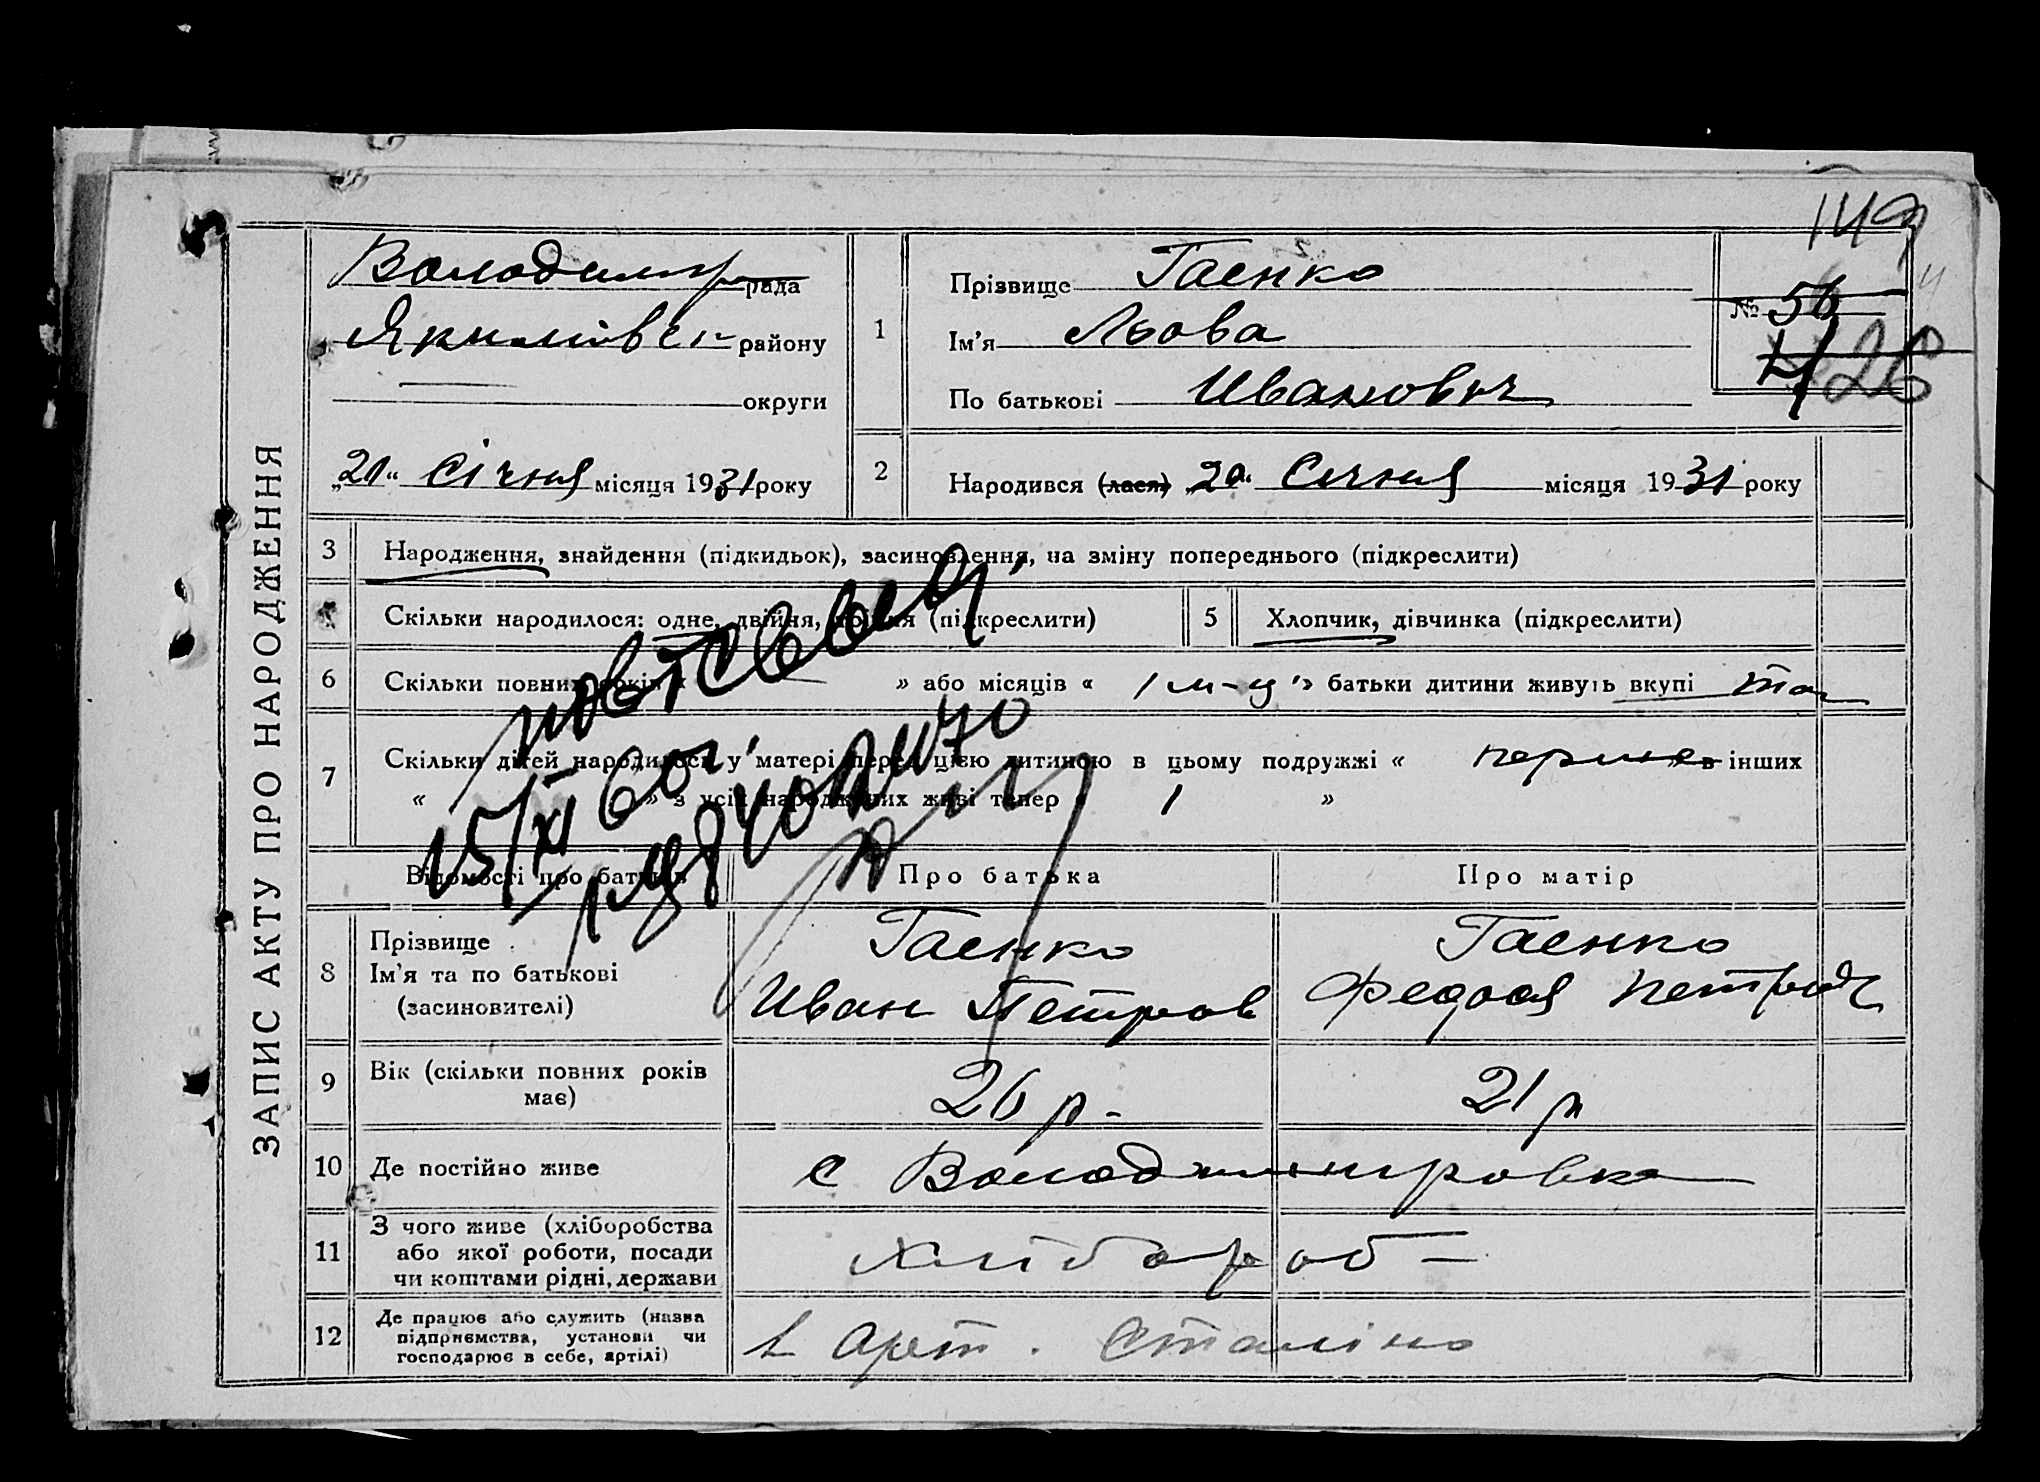 149
ЗАПИС АКТУ ПРО НАРОДЖЕННЯ
Володимир рада
Якимовськ району
округи
„21“ Січня місяця 1931 року
1
Прізвище Гаенко
Ім'я Льова
По батькові Иванович
№ 56
4 26
2
Народився (лася) „20“ Січня місяця 1931 року
3 Народження, знайдення (підкидьок), засиновлення, на зміну попереднього (підкреслити)
Скільки народилося: одне, двійня, трійня (підкреслити) 5 Хлопчик, дівчинка (підкреслити)
6 Скільки повних років « — » або місяців « 1 м-ц » батьки дитини живуть вкупі
7 Скільки дітей народилося у матері перед цією дитиною в цьому подружжі « перше » в інших
« » з усіх народжених живі тепер « 1 »
15/XI 60г.
Відомості про батьків Про батька Про матір
8 Прізвище
Ім'я та по батькові
(засиновителі)
Гаенко
Иван Петров
Гаенко
Федося
9 Вік (скільки повних років має)
26 р - 21 р
10 Де постійно живе с Володимировка
11 З чого живе (хліборобства
або якої роботи, посади
чи коштами рідні, держави
хлібороб —
12 Де працює або служить (назва
підприємства, установи чи
господарює в себе, артілі)
в арт. Сталіна